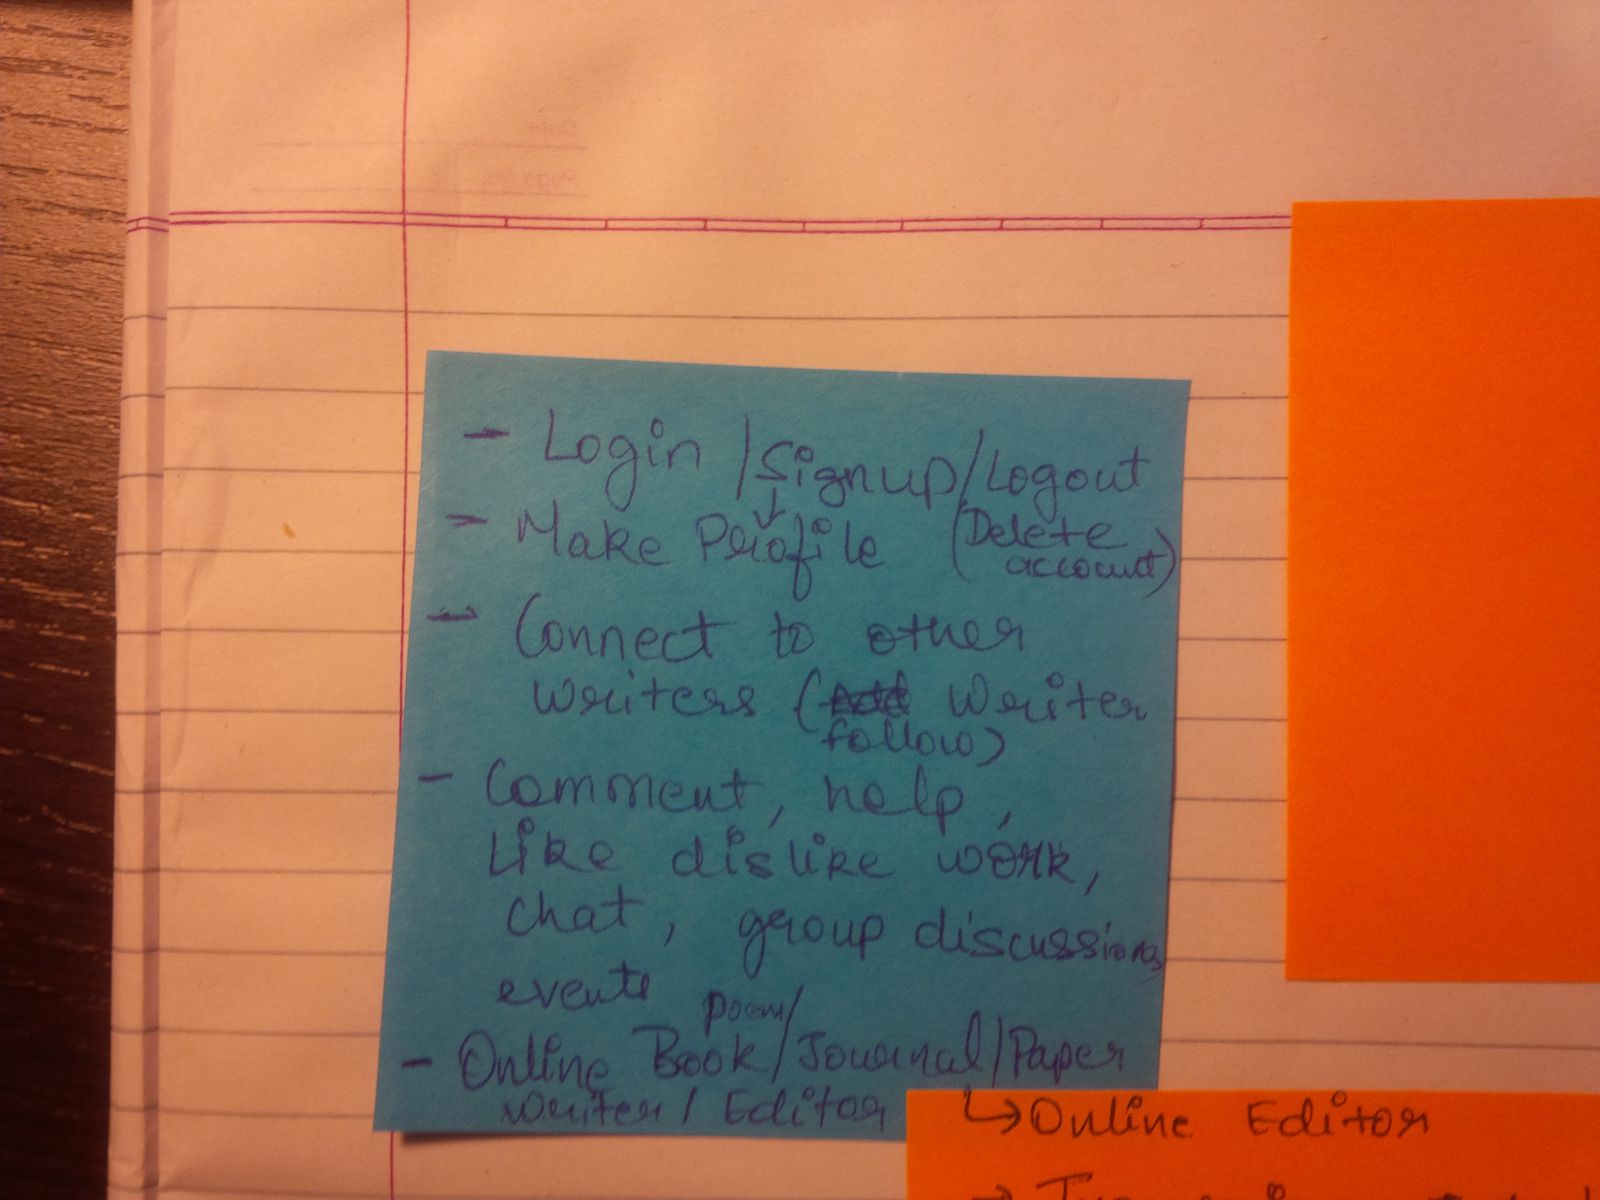 - Login / Signup / Logout
- Make Profile (Delete
account)
- Connect to other
writers ( Writer
follow)
- Comment, help,
like dislike work,
chat, group discussions,
events
poem/
- Online Book / Journal / Paper
writer / Editor
↳ Online Editor